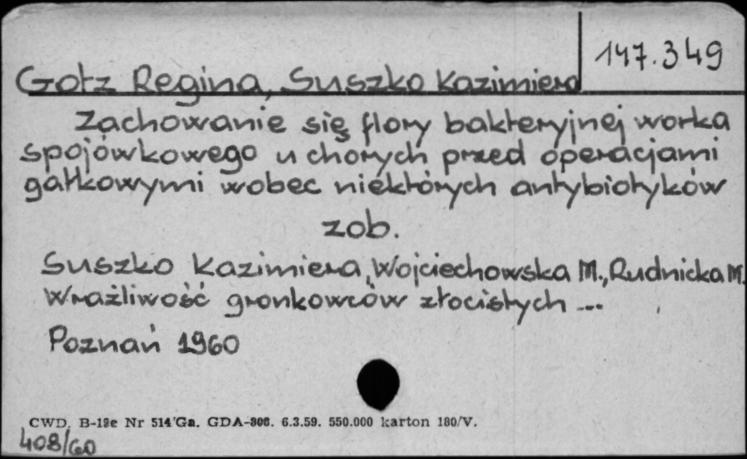 147.349
Gotz Regina, Suszko Kazimiera
Zachowanie się flory bakteryjnej worka
spojówkowego u chorych przed operacjami
gałkowymi wobec niektórych antybiotyków
zob.
Suszko Kazimiera, Wojciechowska M., Rudnicka M.
Wrażliwość gronkowców złocistych ...
Poznań 1960
CWD. B-12c Nr 514 Ga. GDA-308. 6.3.59. 550.000 karton 180/V.
408/60